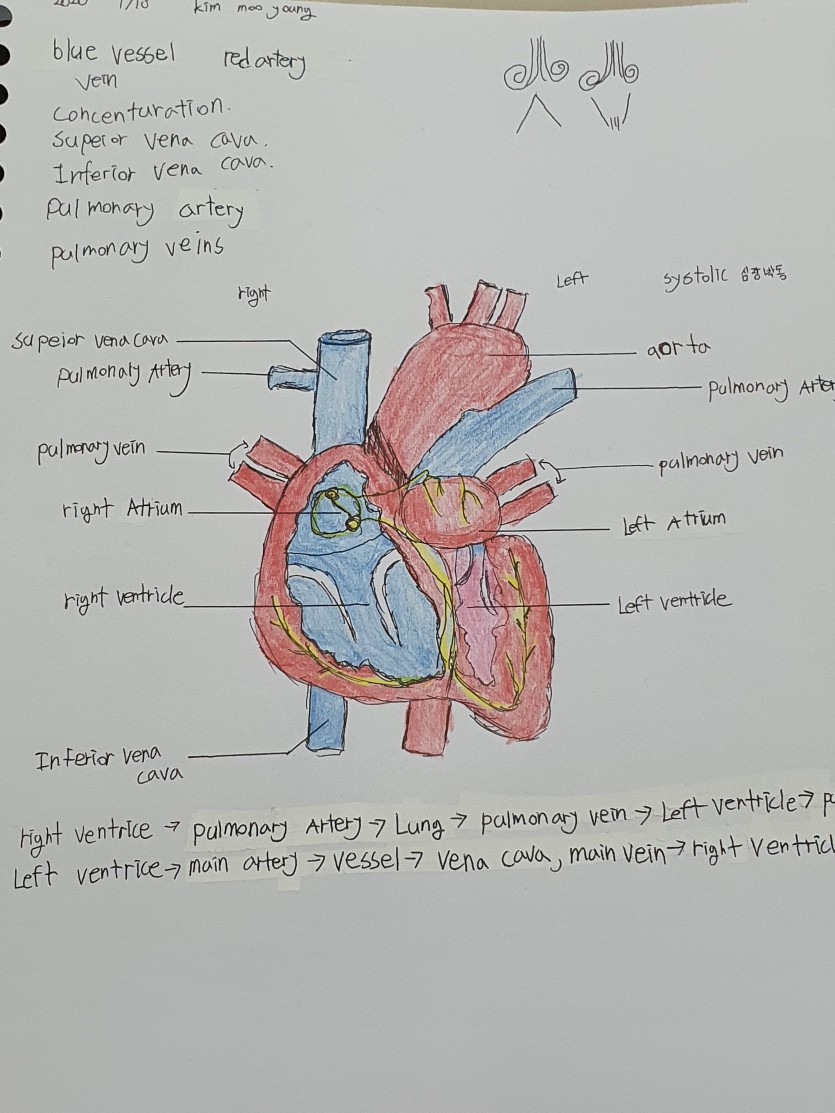 2020 1/18 kim moo young
blue vessel red artery
vein
concenturation.
supeior vena cava.
Inferior vena cava.
pulmonary artery
pulmonary veins
right
Left
systolic 심장박동
supeior vena cava
pulmonary Artery
pulmonary vein
right Atrium
right ventricle
Inferior vena
cava
aorta
pulmonary Arter
pulmonary vein
Left Atrium
Left ventricle
right ventrice → pulmonary Artery → Lung → pulmonary vein → Left ventricle →
Left ventrice → main artery → vessel → vena cava, main vein → right ventricl